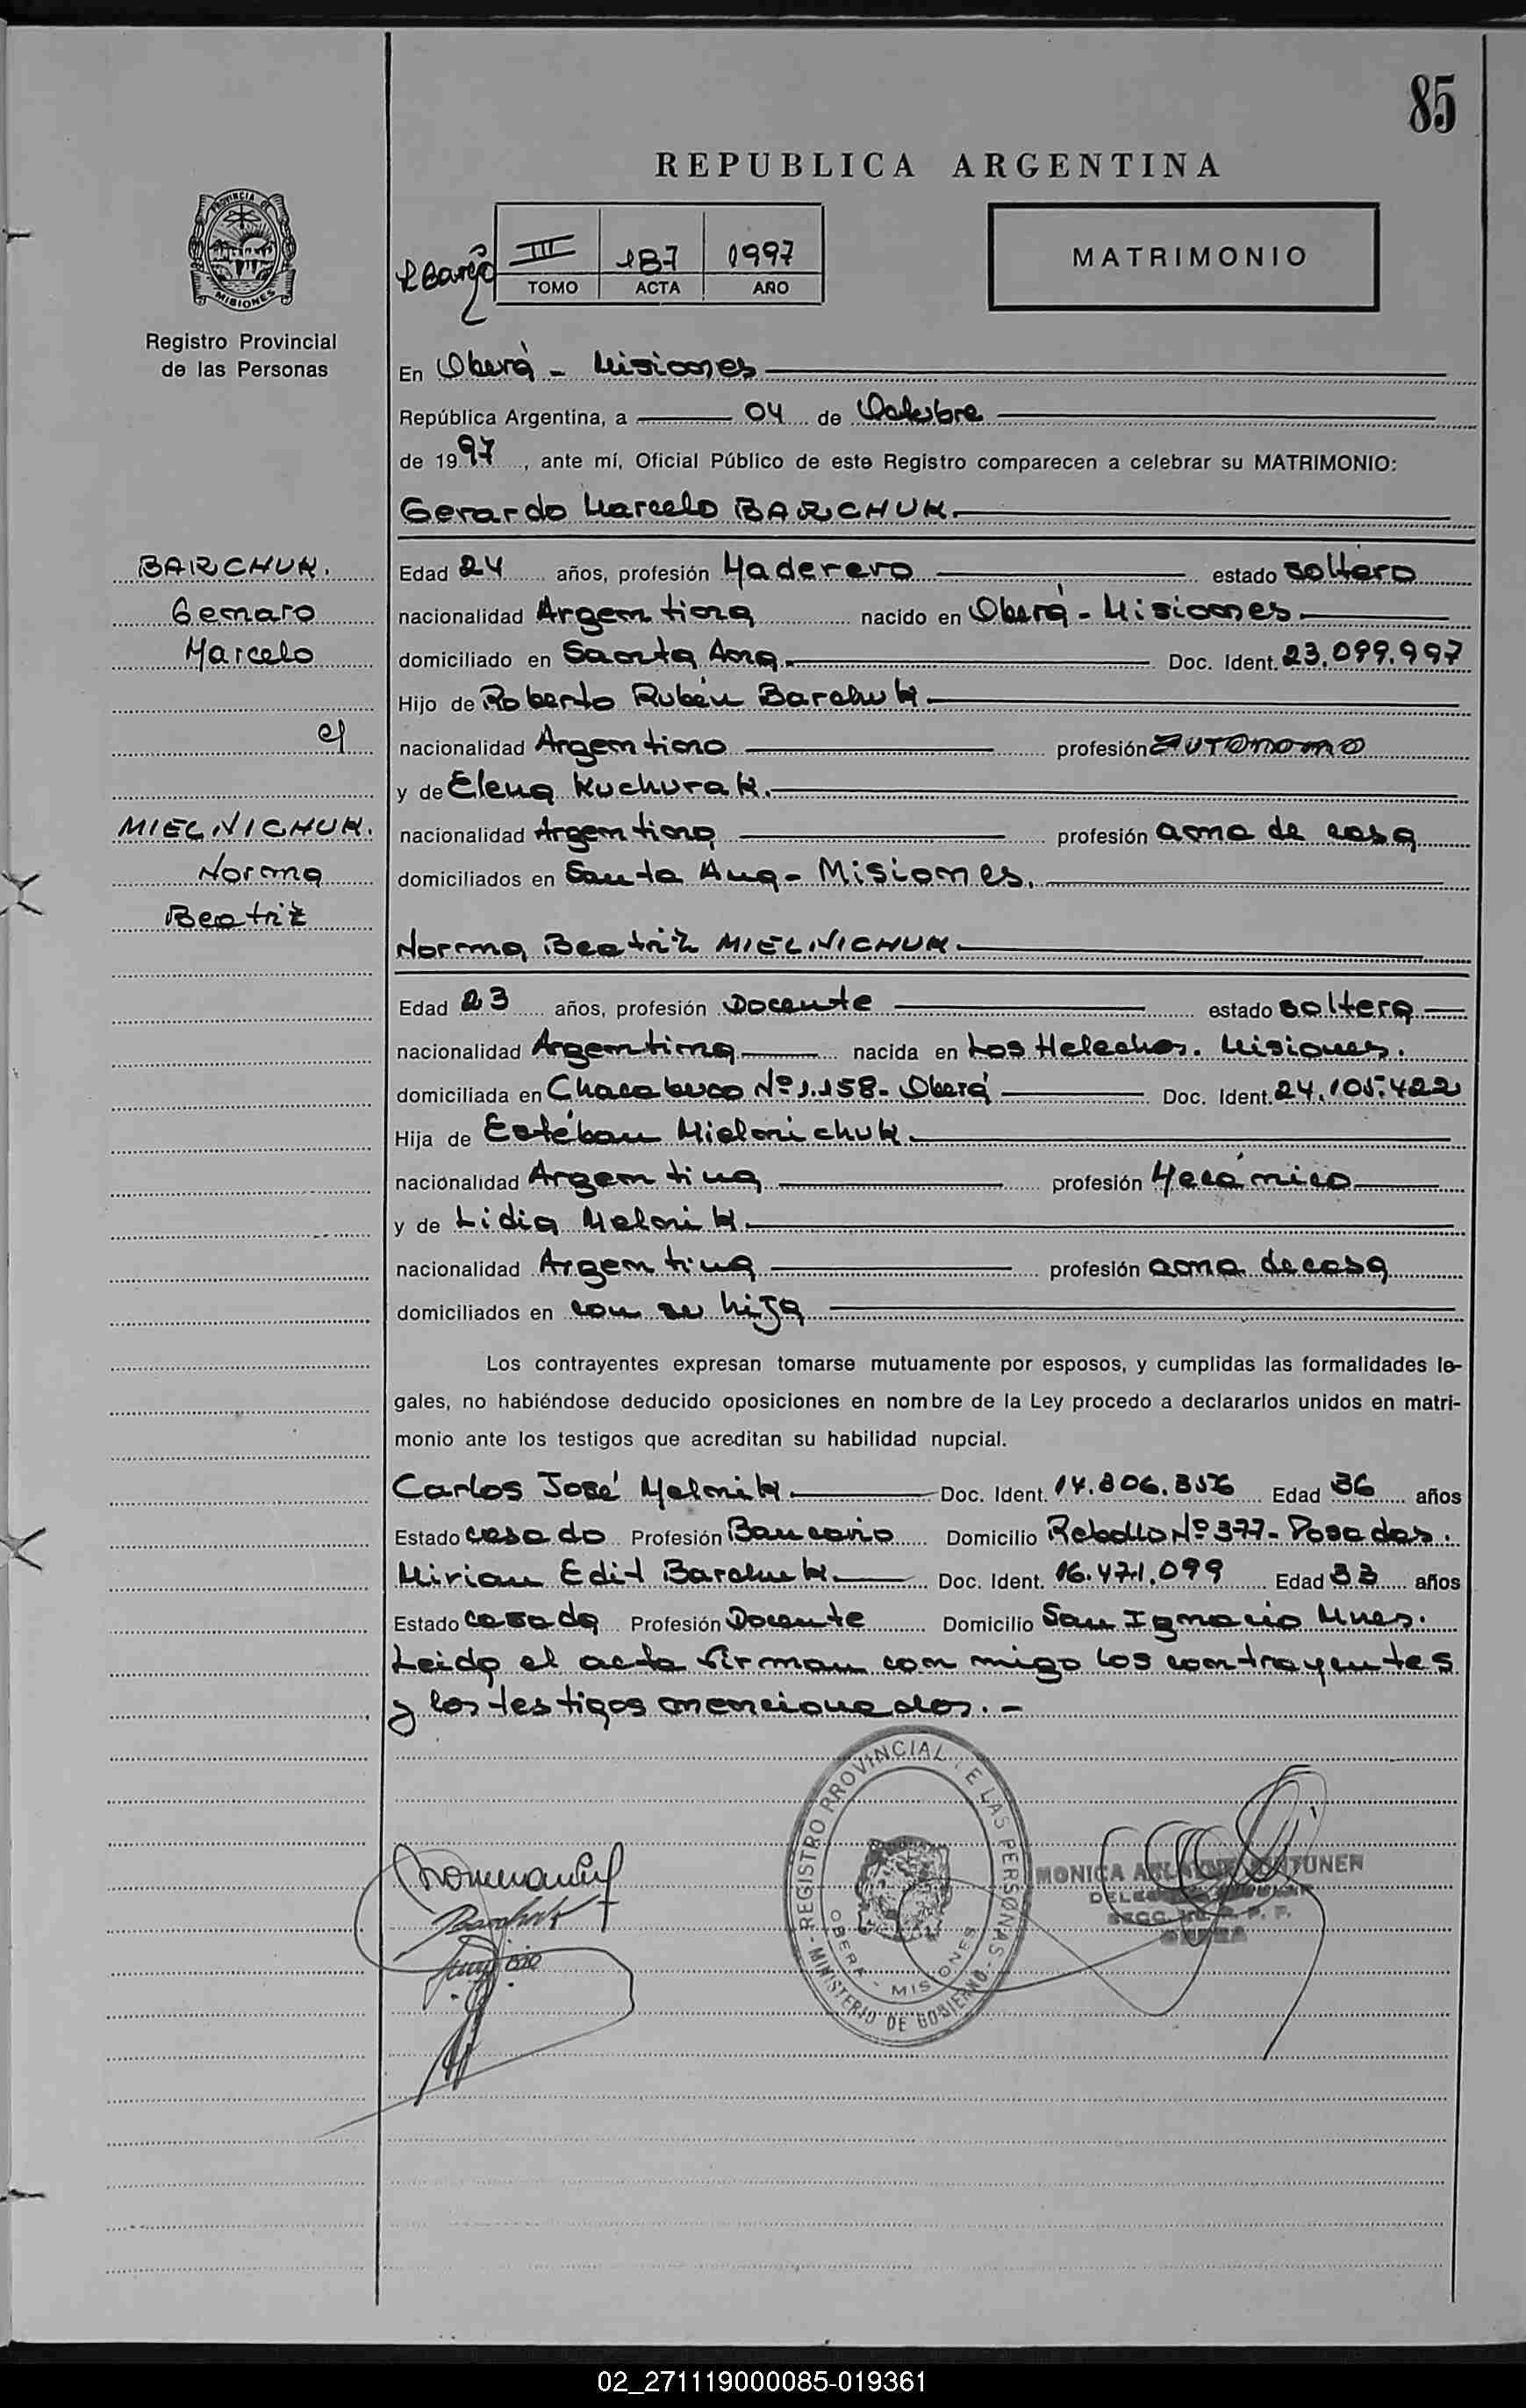 85
REPUBLICA ARGENTINA
PROVINCIA DE
MISIONES
Registro Provincial
de las Personas
III 187 1997
TOMO ACTA AÑO
MATRIMONIO
En Oberá - Misiones
República Argentina, a 04 de Octubre
de 1997, ante mí, Oficial Público de este Registro comparecen a celebrar su MATRIMONIO:
Gerardo Marcelo BARCHUK.
BARCHUK.
Genaro
Marcelo
c/
MIELNICHUK.
Norma
Beatriz
Edad 24 años, profesión Maderero estado soltero
nacionalidad Argentina nacido en Oberá - Misiones.
domiciliado en Santa Ana. Doc. Ident. 23.099.997
Hijo de Roberto Rubén Barchuk
nacionalidad Argentino profesión AUTONOMO
y de Elena Kuchurak.
nacionalidad Argentina profesión ama de casa
domiciliados en Santa Ana - Misiones.
Norma Beatriz MIELNICHUK.
Edad 23 años, profesión Docente estado soltera
nacionalidad Argentina nacida en Los Helechos. Misiones.
domiciliada en Chacabuco Nº 1.158 - Oberá Doc. Ident. 24.105.422
Hija de Estéban Mielnichuk.
nacionalidad Argentina profesión Mecánico
y de Lidia Melnik.
nacionalidad Argentina profesión ama de casa
domiciliados en con su hija
Los contrayentes expresan tomarse mutuamente por esposos, y cumplidas las formalidades le-
gales, no habiéndose deducido oposiciones en nombre de la Ley procedo a declararlos unidos en matri-
monio ante los testigos que acreditan su habilidad nupcial.
Carlos José Melnik. Doc. Ident. 14.806.856 Edad 36 años
Estado casado Profesión Bancario Domicilio Rebollo Nº 377 - Posadas.
Mirian Edit Barchuk. Doc. Ident. 16.471.099 Edad 33 años
Estado casada Profesión Docente Domicilio San Ignacio Mnes.
Leida el acta firman con migo los contrayentes
y los testigos mencionados. -
REGISTRO PROVINCIAL DE LAS PERSONAS
MINISTERIO DE GOBIERNO
OBERA - MISIONES
MONICA
OBERA
02_271119000085-019361